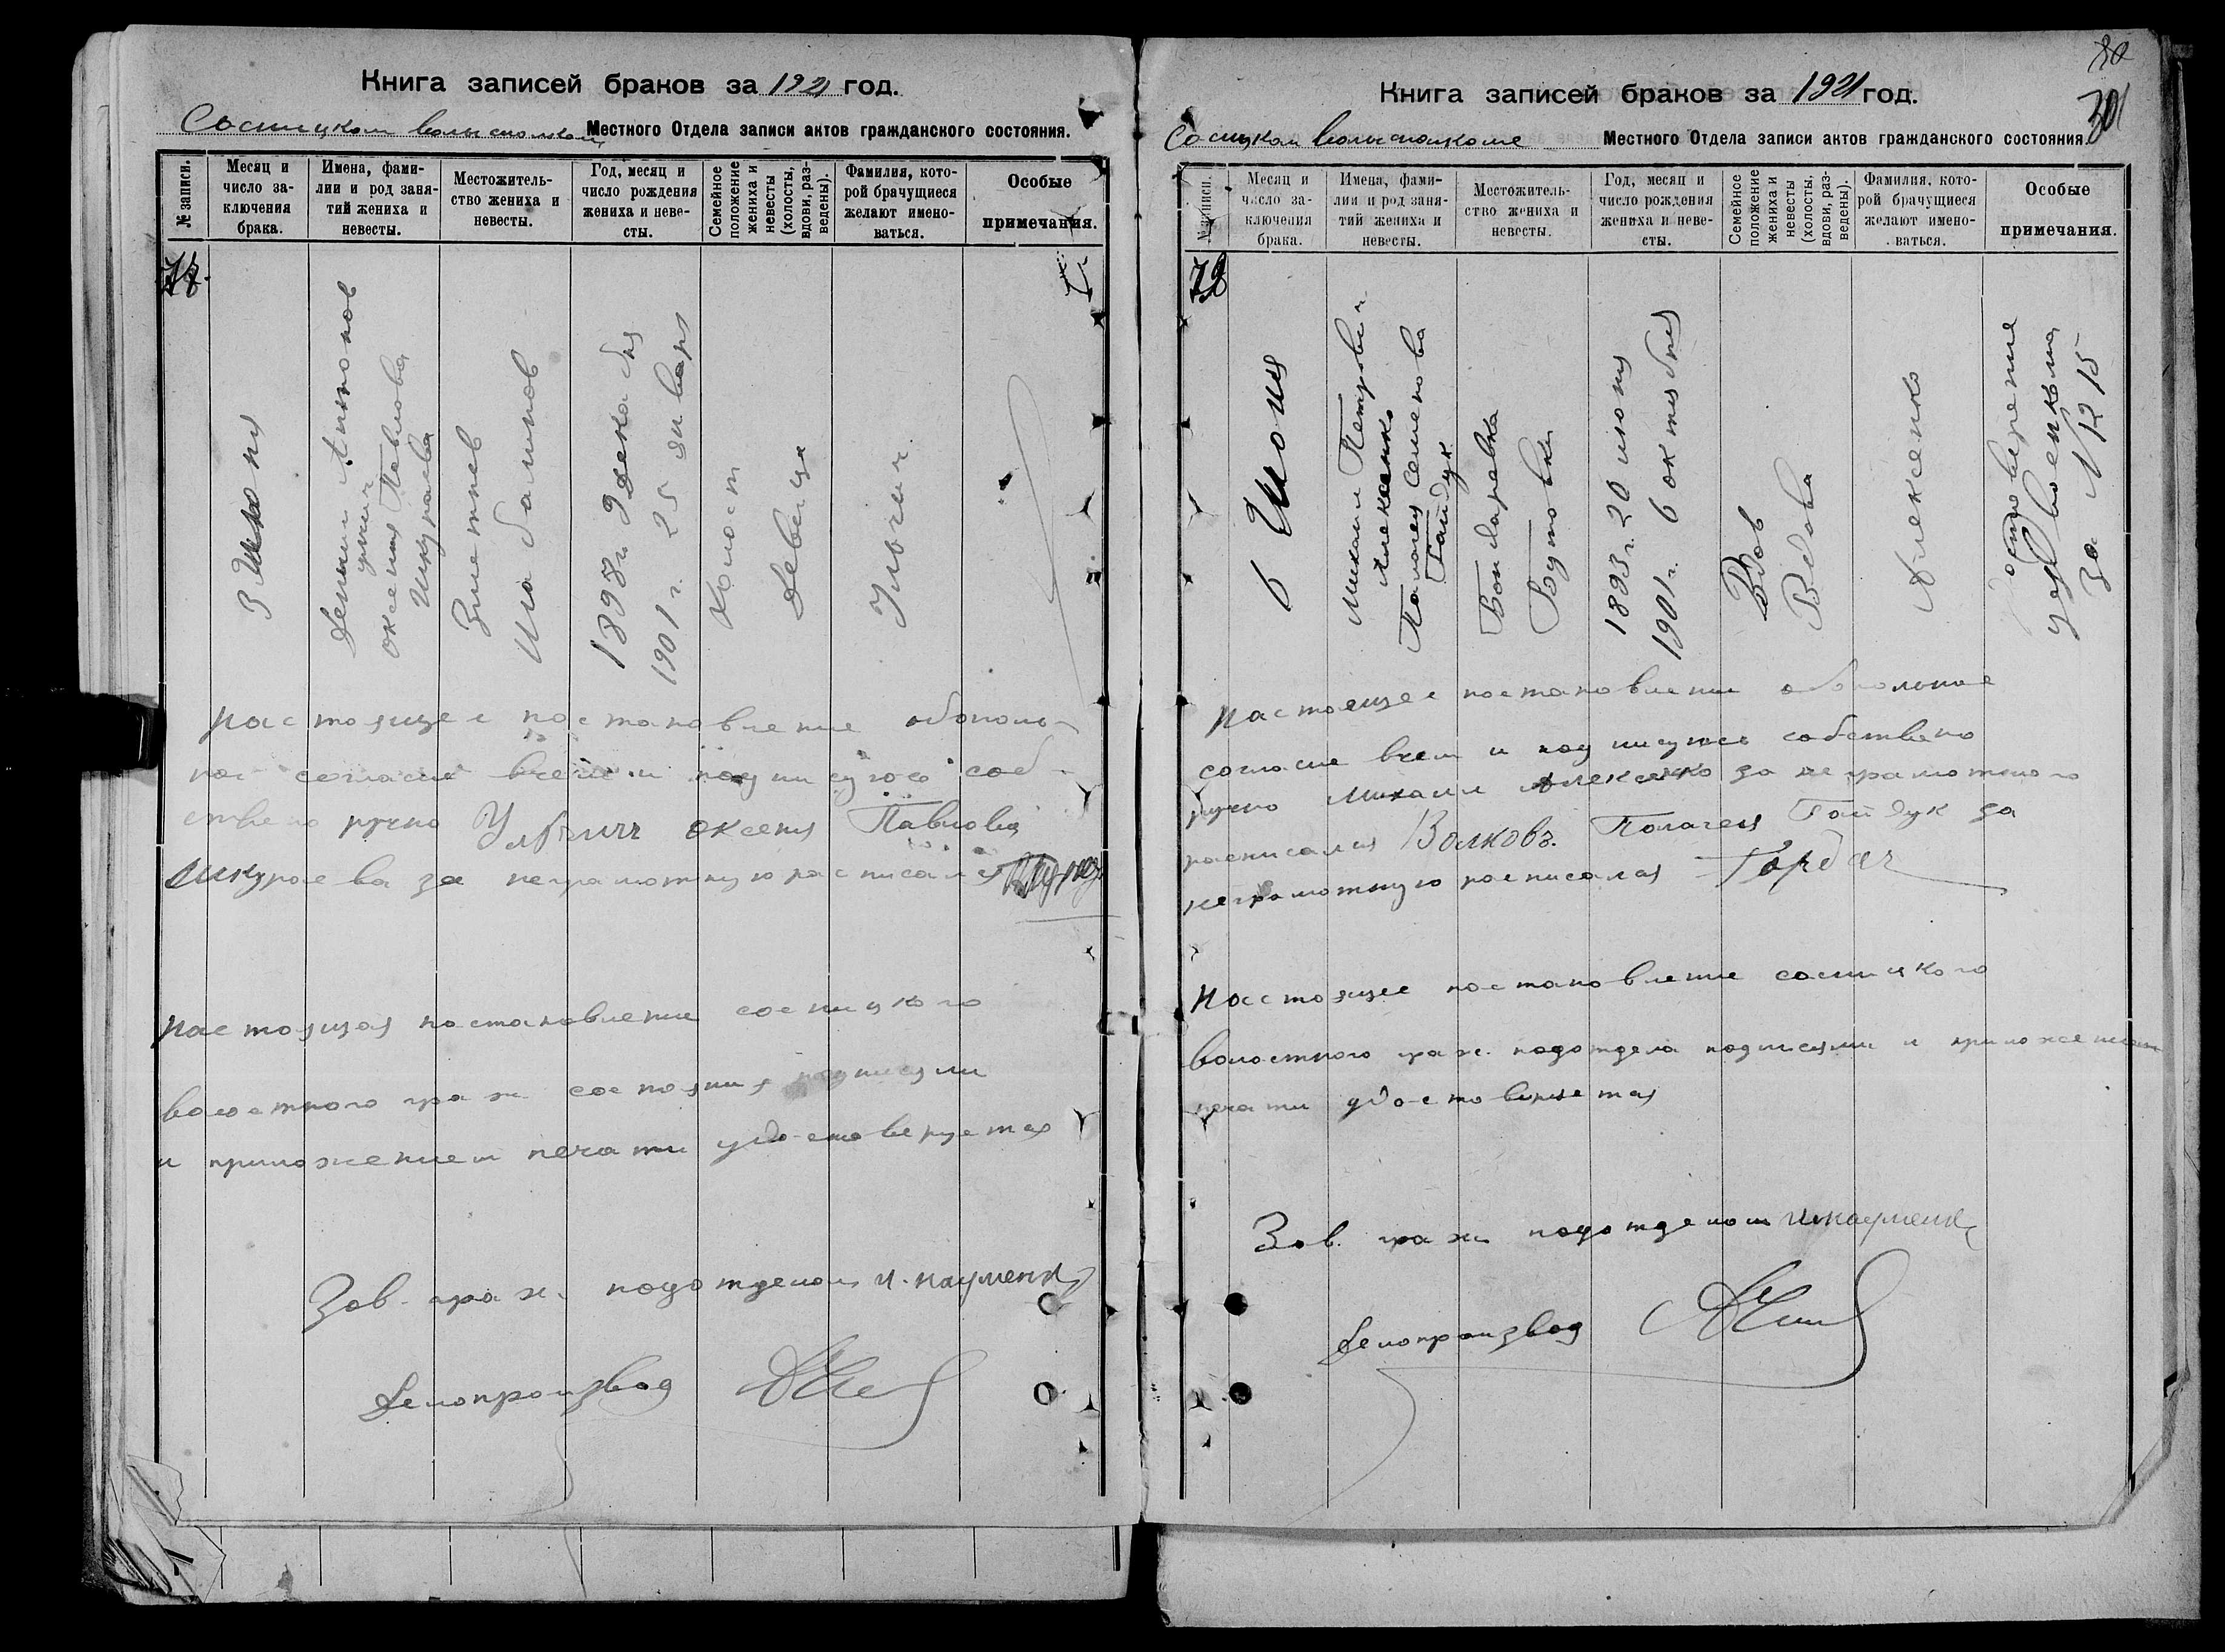 Книга записей браков за 1921 год.
Сосницком волисполком Местного Отдела записи актов гражданского состояния.
№ записи.
Месяц и число заключения брака.
Имена, фамилии и род занятий жениха и невесты.
Местожительство жениха и невесты.
Год, месяц и число рождения жениха и невесты.
Семейное положение жениха и невесты (холосты, вдовы, разведены).
Фамилия, которой брачущиеся желают именоваться.
Особые примечания.
3 Июня
Оксения Павловна
Шкураева
1898 г. 9 декабря
1901 г. 25 январ
Холост
Девица
Настоящее постановление
согласие всем и подписуюсь соб
ствено ручно Оксения Павловна
Шкураева за неграмотную расписался
Настоящая постановление сосницкого
волостного граж. состояния подписями
и приложением печати удостоверуется
Зов. граж. подотделом И. Науменко
Делопроизвод
30
Книга записей браков за 1921 год.
Сосницком волисполкоме Местного Отдела записи актов гражданского состояния.
№ записи.
Месяц и число заключения брака.
Имена, фамилии и род занятий жениха и невесты.
Местожительство жениха и невесты.
Год, месяц и число рождения жениха и невесты.
Семейное положение жениха и невесты (холосты, вдовы, разведены).
Фамилия, которой брачущиеся желают именоваться.
Особые примечания.
6 Июня
Михаил Петрович
Алексенко
Палагея Семенова
Гайдук
Бондаревка
Бутовки
1893 г. 20 июня
1901 г. 6 октября
Вдов
Вдова
Алексенко
за № 1215
Настоящее постановлении
согласие всем и подписуюсь собствено
ручно Михаил Алексенко за неграмотного
росписался Волковъ. Полагея Гайдук за
неграмотную росписалая Горбач
Настоящее постановление сосницкого
волостного граж. подотдела подписями и приложением
печати удостоверяетая
Зов. граж подотделом И Науменко
Делопроизвод